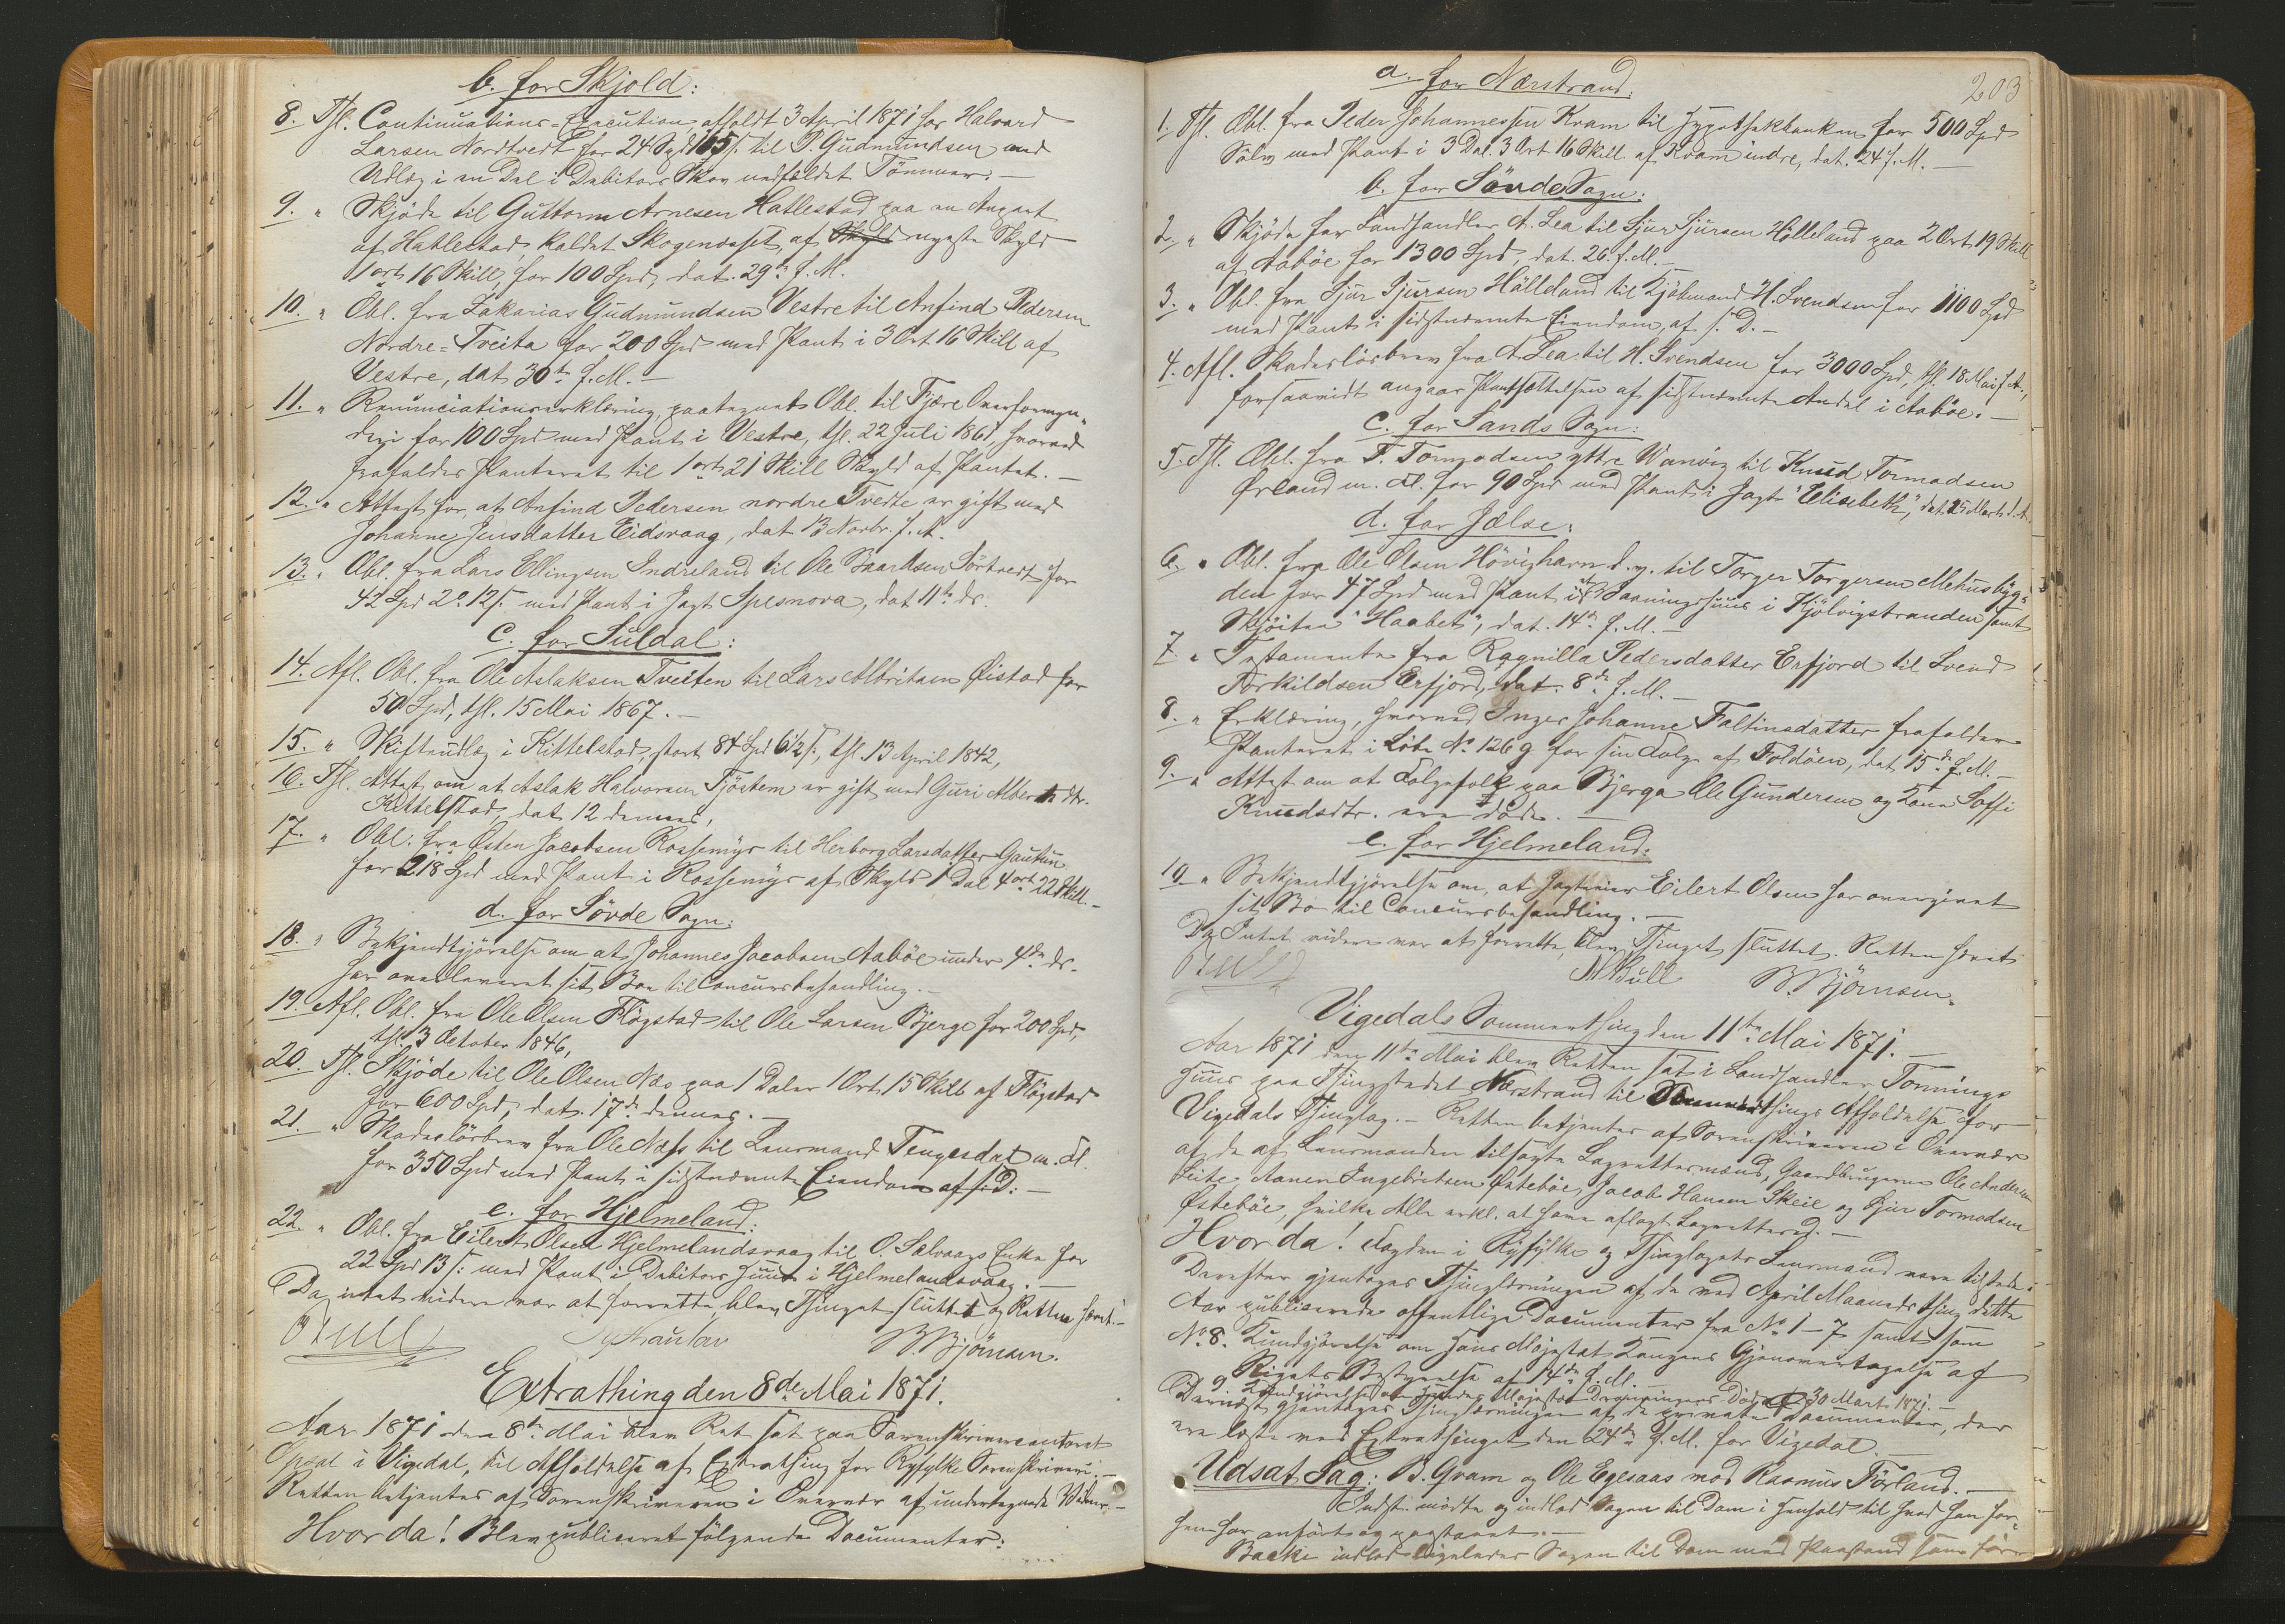 b. for Skjold:
8. Thl. Continuations-Execution afholdt 3 April 1871 hos Halvard
Larsen Nordtvedt for 24 Spd 105 s. til P. Gudmundsen med
Udlæg i en Del i Debitors Skov nedfældet Tömmer. -
9. " Skjöde til Guttorm Arnesen Hatlestad paa en Anpart
af Hatlestad, kaldet Skogeneset, af Skyld nyeste Skyld
1 ort 16 Skill, for 100 Spd, dat. 29de f. M.
10. " Obl. fra Zakarias Gudmundsen Vestre til Anfind Pedersen
Nordre-Tveita for 200 Spd med Pant i 3 Ort 16 Skill af
Vestre, dat 30te f. M. -
11. " Renunciationserklæring paategnet Obl. til Fjære Overformyn-
deri for 100 Spd med Pant i Vestre, thl. 22 Juli 1861, hvorved
frafaldes Panteret til 1 ort 21 Skill Skyld af Pantet. -
12. " Attest for at Anfind Pedersen nordre Tvedte er gift med
Johanne Jensdatter Eidsvaag, dat 13 Novbr. f. A.
13. " Obl. fra Lars Ellingsen Indreland til Ole Baardsen Törtvedt for
42 Spd 2 o. 12 s. med Pant i Jagt Spesnova, dat 11te ds.
c. for Suldal:
14. Afl. Obl. fra Ole Aslaksen Tveiten til Lars Albritsen Øistad for
50 Spd, thl. 15 Mai 1867. -
15. " Skifteudlæg i Kittelstad, stort 84 Spd 6 1/2 s., thl. 13 April 1842,
16. Thl. Attest om at Aslak Halvorsen Tjöstem er gift med Guri Alberts dtr.
Kittelstad, dat 12 dennes,
17. " Obl. fra Östen Jacobsen Rossemyr til Herborg Larsdatter Gautun
for 218 Spd med Pant i Rossemyr af Skyld 1 Dal 4 ort 22 Skill. -
d. for Sövde Sogn:
18. " Bekjendtgjörelse om at Johannes Jacobsen Aaböe under 4de ds.
har overleveret sit Boe til Concursbehandling. -
19. Afl. Obl. fra Ole Olsen Flögstad til Ole Larsen Bjerge for 200 Spd,
thl. 3 October 1846,
20. Thl. Skjöde til Ole Olsen Næs paa 1 Daler 1 Ort 15 Skill af Flögstad
for 600 Spd, dat. 17de dennes. -
21. " Skadeslösbrev fra Ole Næss til Lensmand Tengesdal m. Fl.
for 350 Spd med Pant i sidstnævnte Eiendom af s. D. -
e. for Hjelmeland:
22. " Obl. fra Eilert Olsen Hjelmelandsvaag til O. Salvaags Enke for
22 Spd 13 s. med Pant i Debitors Huus i Hjelmelandsvaag. -
Da intet videre var at forrette, blev Thinget sluttet og Retten hævet. -
Bull
B. Björnsen.
Extrathing den 8de Mai 1871.
Aar 1871 den 8de Mai blev Ret sat paa Sorenskrivercontoret
Opdal i Vigedal, til Afholdelse af Extrathing for Ryfylke Sorenskriveri. -
Retten betjentes af Sorenskriveren i Overvær af undertegnede Vidner. -
Hvorda! Blev publiceret fölgende Documenter:
203
a. for Nærstrand:
1. Thl. Obl. fra Peder Johannessen Kvam til Hypothekbanken for 500 Spd
Sölv med Pant i 3 Dal. 3 Ort 16 Skill. af Kvam indre, dat. 24 f. M. -
b. for Sövde Sogn:
2. " Skjöde fra Landhandler A. Lea til Sjur Sjursen Hölleland paa 2 Ort 19 Skill
af Aaböe for 1300 Spd, dat. 26. f. M. -
3. " Obl. fra Sjur Sjursen Hölleland til Kjöbmand H. Svendsen for 1100 Spd
med Pant i sidstnævnte Eiendom, af s. D. -
4. Afl. Skadeslösbrev fra A. Lea til H. Svendsen for 3000 Spd, thl. 18 Mai f. A.,
forsaavidt angaar Pantsættelsen af sidstnævnte Andel i Aaböe. -
c. for Sands Sogn:
5. Thl. Obl. fra T. Tormodsen yttre Wanvig til Knud Tormodsen
Ørland m. Fl. for 90 Spd med Pant i Jagt "Elisebeth", dat. 25 Marts d. A.
d. for Jelse:
6. " Obl. fra Ole Olsen Hövighavn d. y. til Torger Torgersen Mehusbyg-
den for 47 Spd med Pant i et Vaaningshuus i Kjölvigstranden samt
Skjöiten "Haabet", dat. 14de f. M. -
7. " Testamente fra Ragnilla Pedersdatter Erfjord til Svend
Torkildsen Erfjord, dat. 8de f. M. -
8. " Erklæring, hvorved Inger Johanne Faltinsdatter frafalder
Panteret i Löbe No. 126 g for sin Folge af Foldöen, dat 15de f. M. -
9. " Attest om at Folgefolk paa Bjerga Ole Gundersen og Kone Soffi
Knudsdtr. ere döde. -
e. for Hjelmeland:
10. " Bekjendtgjörelse om, at Jagteier Eilert Olsen har overgivet
sit Bo til Concursbehandling. -
Da Intet videre var at forrette, blev Thinget sluttet. Retten hævet
Bull
M Bull
B. Björnsen.
Vigedals Sommerthing den 11te Mai 1871. -
Aar 1871 den 11te Mai blev Retten sat i Landhandler Tonnings
Huus paa Thingstedet Nærstrand til Sommerthings Afholdelse for
Vigedals Thinglag. - Retten betjentes af Sorenskriveren i Overvær
af de af Lensmanden tilsagte Lagrettesmænd, Gaardbrugerne Ole Andersen
Leite, Aanen Ingebretsen Østeböe, Jacob Hansen Skeie og Sjur Tormodsen
Østeböe, hvilke Alle erkl. at have aflagt Lagretteed. -
Hvorda! Fogden i Ryfylke og Thinglagets Lensmand vare tilstede:
Derefter gjentoges Thinglæsningen af de ved April Maaneds thing dette
Aar publicerede offentlige Documenter fra No. 1-7 samt som
No. 8. Kundgjörelse om Hans Majestæt Kongens Gjenovertagelse af
Rigets Bestyrelse af 14de f. M. -
9 Kundgjörelse om Hendes Majestæt Dronningens Död af 30 Marts 1871. -
Dernæst gjentoges Thinglæsningen af de private Documenter, der
ere læste ved Extrathinget den 24de f. M. for Vigedal. -
Udsat Sag: B. Gram og Ole Egesaas mod Rasmus Förland. -
Indst. mödte og indlod Sagen til Dom i Henhold til hvad han for-
hen har anfört og paastaaet. -
Backe indlod ligeledes Sagen til Dom med Paastand som för